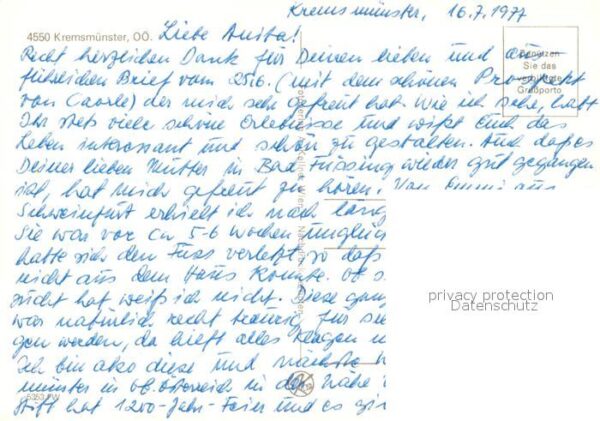 Kremsmünster, 16.7.1977
4550 Kremsmünster, OÖ. Liebe Anita!
Recht herzlichen Dank für Deinen lieben und aus-
führlichen Brief vom 25.6. (mit dem schönen Prospekt
von Caorle) der mich sehr gefreut hat. Wie ich sehe, habt
Ihr stets viele schöne Erlebnisse und wißt Euch das
Leben interessant und schön zu gestalten. Auch daß es
Deiner lieben Mutter in Bad Füssing wieder gut gegangen
ist, hat mich gefreut zu hören. Von Emmi aus
Schweinfurt erhielt ich nach lang
Sie war vor ca 5-6 Wochen unglück
hatte sich den Fuss verletzt so daß
nicht aus dem Haus konnte. Ob s
sucht hat weiß ich nicht. Diese gan
was natürlich recht traurig für sie
gen werden, da hilft alles Klagen n
Ich bin also diese und nächste
münster in Ob. Österreich in der Nähe
Stift hat 1200-Jahr-Feier und es gi
Benützen
Sie das
verbilligte
Grußporto
5353 PW
privacy protection
Datenschutz